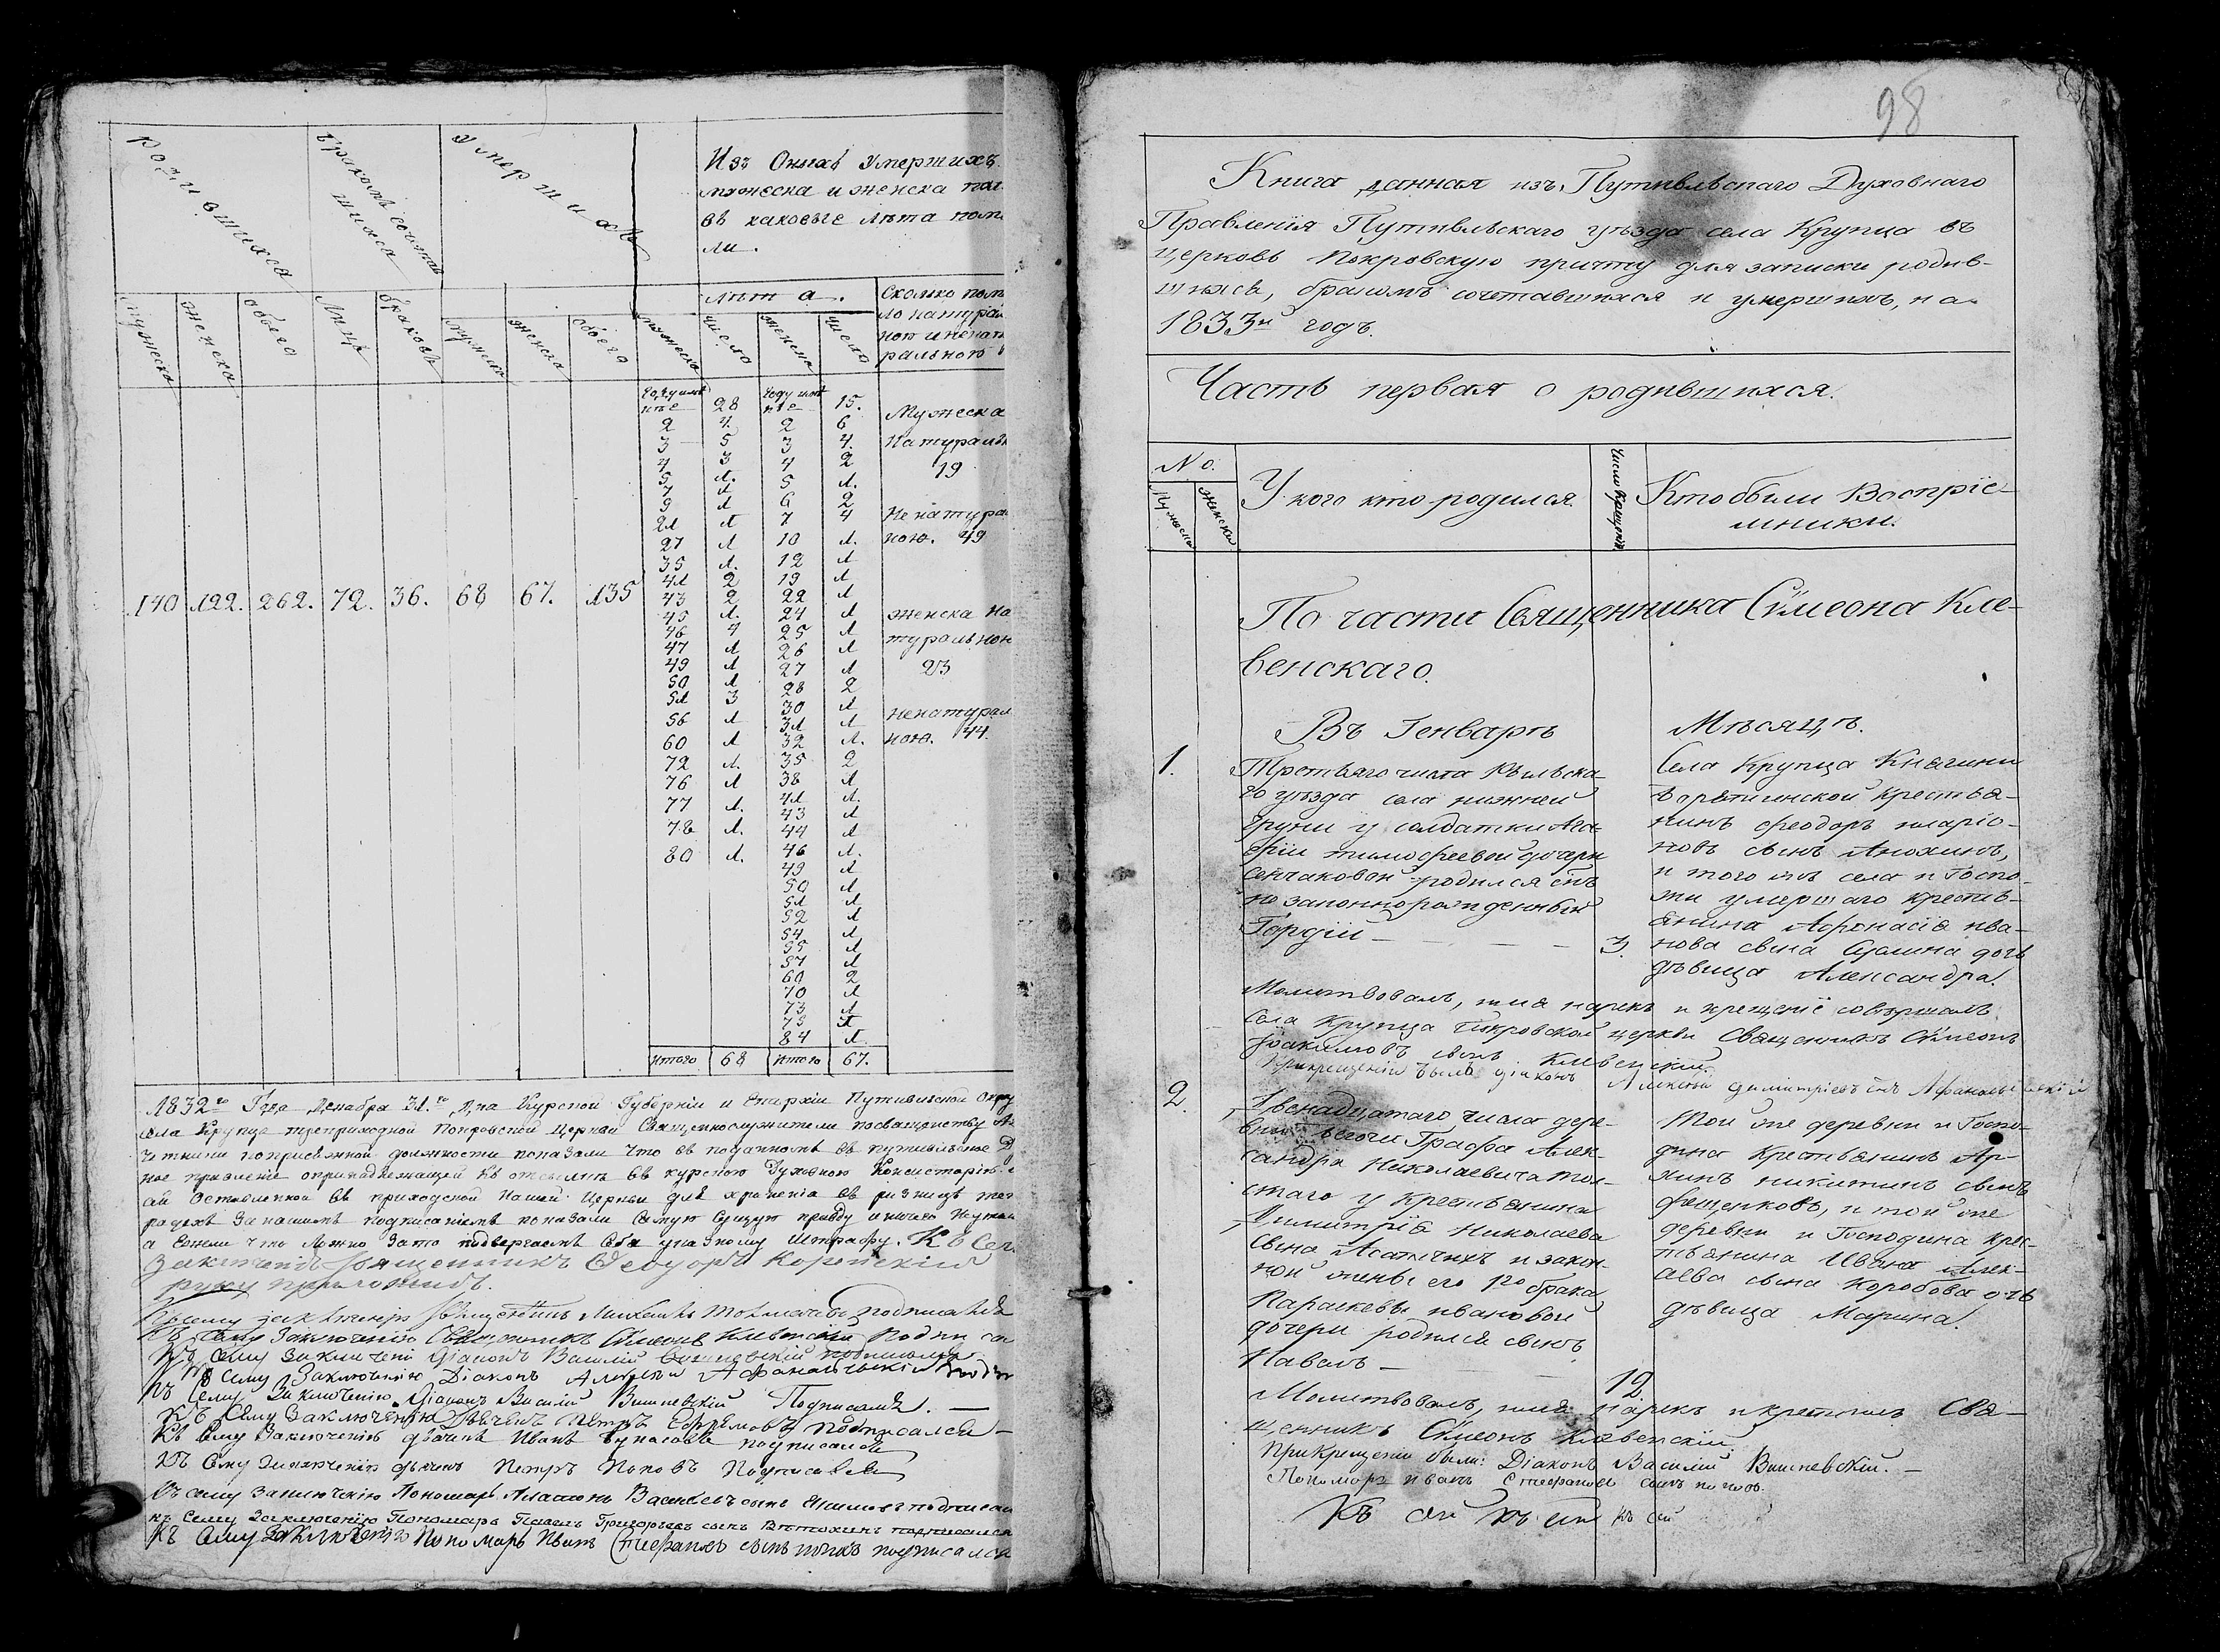 родившихся
бракомъ сочетав
шихся
умершихъ
Изъ Оныхъ умершихъ
мужеска и женска пол
въ каковые лѣта поме
ли.
мужеска
женска
обоего
лицъ
браковъ
мужеска
женска
обоего
лѣта.
мужеска
число
женска
число
Сколько поме
ло натурал
ною и ненату
ральною
140 122. 262. 72. 36. 68 67. 135
году и мѣ 28 году и мѣ 15.
2 4. 2 6
3 5 3 4.
4 3 4 2
5 1. 5 1.
7 1 6 2
9 1 7 4
21 1 10 1.
27 1 12 1
35 1. 19 1
41 2 22 1
43 2 24 1
45 1. 25 1
46 4 26 1
47 1 27 1
49 1 28 2
50 1 30 1
51 3 31 1
56 1 32 1.
60 1 35 2
72 1. 38 1
76 1 41 1.
77 1. 43 1
78 1. 44 1
80 1. 46 1.
49 1
50 1
51 1
52 1
54 1
55 1
57 1
60 2
70 1
73 1
75 1
84 1
Мужеска
Натураль
19
Ненатура
ною. 49
женска на
туральною
23
ненатурал
ною. 44.
итого 68 итого 67.
1832го Года Декабря 31.го дня Курской Губерніи и Епархіи Путивльской Округ
села Крупца трепрыходной Покровской Церкви Священноцерковнослужители по священству
и по присяжной должности показали что въ поданномъ въ путивльское Д
ное правленіе о принадлежащей къ отсылкѣ въ курскую Духовную Консисторію
ой Оставленной въ приходской Нашей Церкви для храненія въ ризницѣ мет
рахъ за нашимъ подписаніемъ показали самую сущую правду и ничего не ута
а Ежели что ложно зато подвергаемъ себя указному Штрафу. Къ Сем
заключенію Священникъ Ѳеодоръ Корейскій
руку приложилъ.
Къ сему заключенію Священникъ Михаилъ подписался
Къ сему Заключенію Священникъ Сѵмеонъ Клевенскій Подписа
Къ сему заключенію Діаконъ Василій подписался
Къ Сему Заключенію Діаконъ Алексѣй Афанасьевскій подп
Къ Сему Заключенію Діаконъ Василій Вишневскій Подписался. —
Къ Сему Заключенію Дьячекъ Петръ Ефремовъ подписался —
Къ Сему Заключенію дьячекъ Иванъ подписался
Къ Сему Заключенію дьячекъ Петръ Поповъ Подписался
Къ сему Заключенію Пономарь Васильевъ сынъ подписал
Къ Сему Заключенію Пономарь Павелъ Григорьевъ сынъ подписался
Къ Сему Заключенію Пономарь Иванъ Стефановъ сынъ поповъ подписался
98
Книга данная изъ Путивльскаго Духовнаго
Правленія Путивльскаго уѣзда села Крупца въ
церковь Покровскую причту для записки родив-
шихся, бракомъ сочетавшихся и умершихъ, на
1833й годъ.
Часть первая о родившихся.
No.
Мужеска
Женска
У кого кто родился.
Число Крещенія
Кто были Воспріе-
мники.
По части Священника Сѵмеона Кле-
венскаго.
Въ Генварѣ Мѣсяцѣ.
1.
Третьяго числа Рыльска
го уѣзда села нижней
Груни у солдатки Ага-
фіи тимофеевой дочери
Сенчаковой родился сынъ
не законнорожденный
Гордій — — — 3.
Села Крупца Княгини
Борятинской крестья-
нинъ Ѳеодоръ иларіо-
новъ сынъ Анохинъ,
и того жъ села и Госпо-
жи умершаго кресть-
янина Афонасія ива-
нова сына дочь
дѣвица Александра.
Молитвовалъ, имя нарекъ и крещеніе совершалъ
села Крупца Покровской церкви Священникъ Сѵмеонъ
Іоакимовъ сынъ Клевенскій.
При крещеніи былъ діаконъ Алексѣй димитріевъ сынъ Афанасьевскій
2.
Двенадцатаго числа дере-
вни Графа Алек-
сандра Николаевича тол-
стаго у крестьянина
Димитрія Николаева
сына и закон-
ной жены его 1го брака
Параскевы ивановой
дочери родился сынъ
Павелъ — — 12.
Той же деревни и Госпо-
дина крестьянинъ Ар-
хипъ никитинъ сынъ
Фещенковъ, и той же
деревни и Господина крес-
тьянина Ивана Алек-
сѣева сына Коробова дочь
дѣвица Марина.
Молитвовалъ, имя нарекъ и крестилъ Свя-
щенникъ Сѵмеонъ Клевенскій.
При крещеніи были: Діаконъ Василій Вишневскій. —
Пономарь иванъ Стефановъ сынъ поповъ.
Къ сей къ сей къ сей